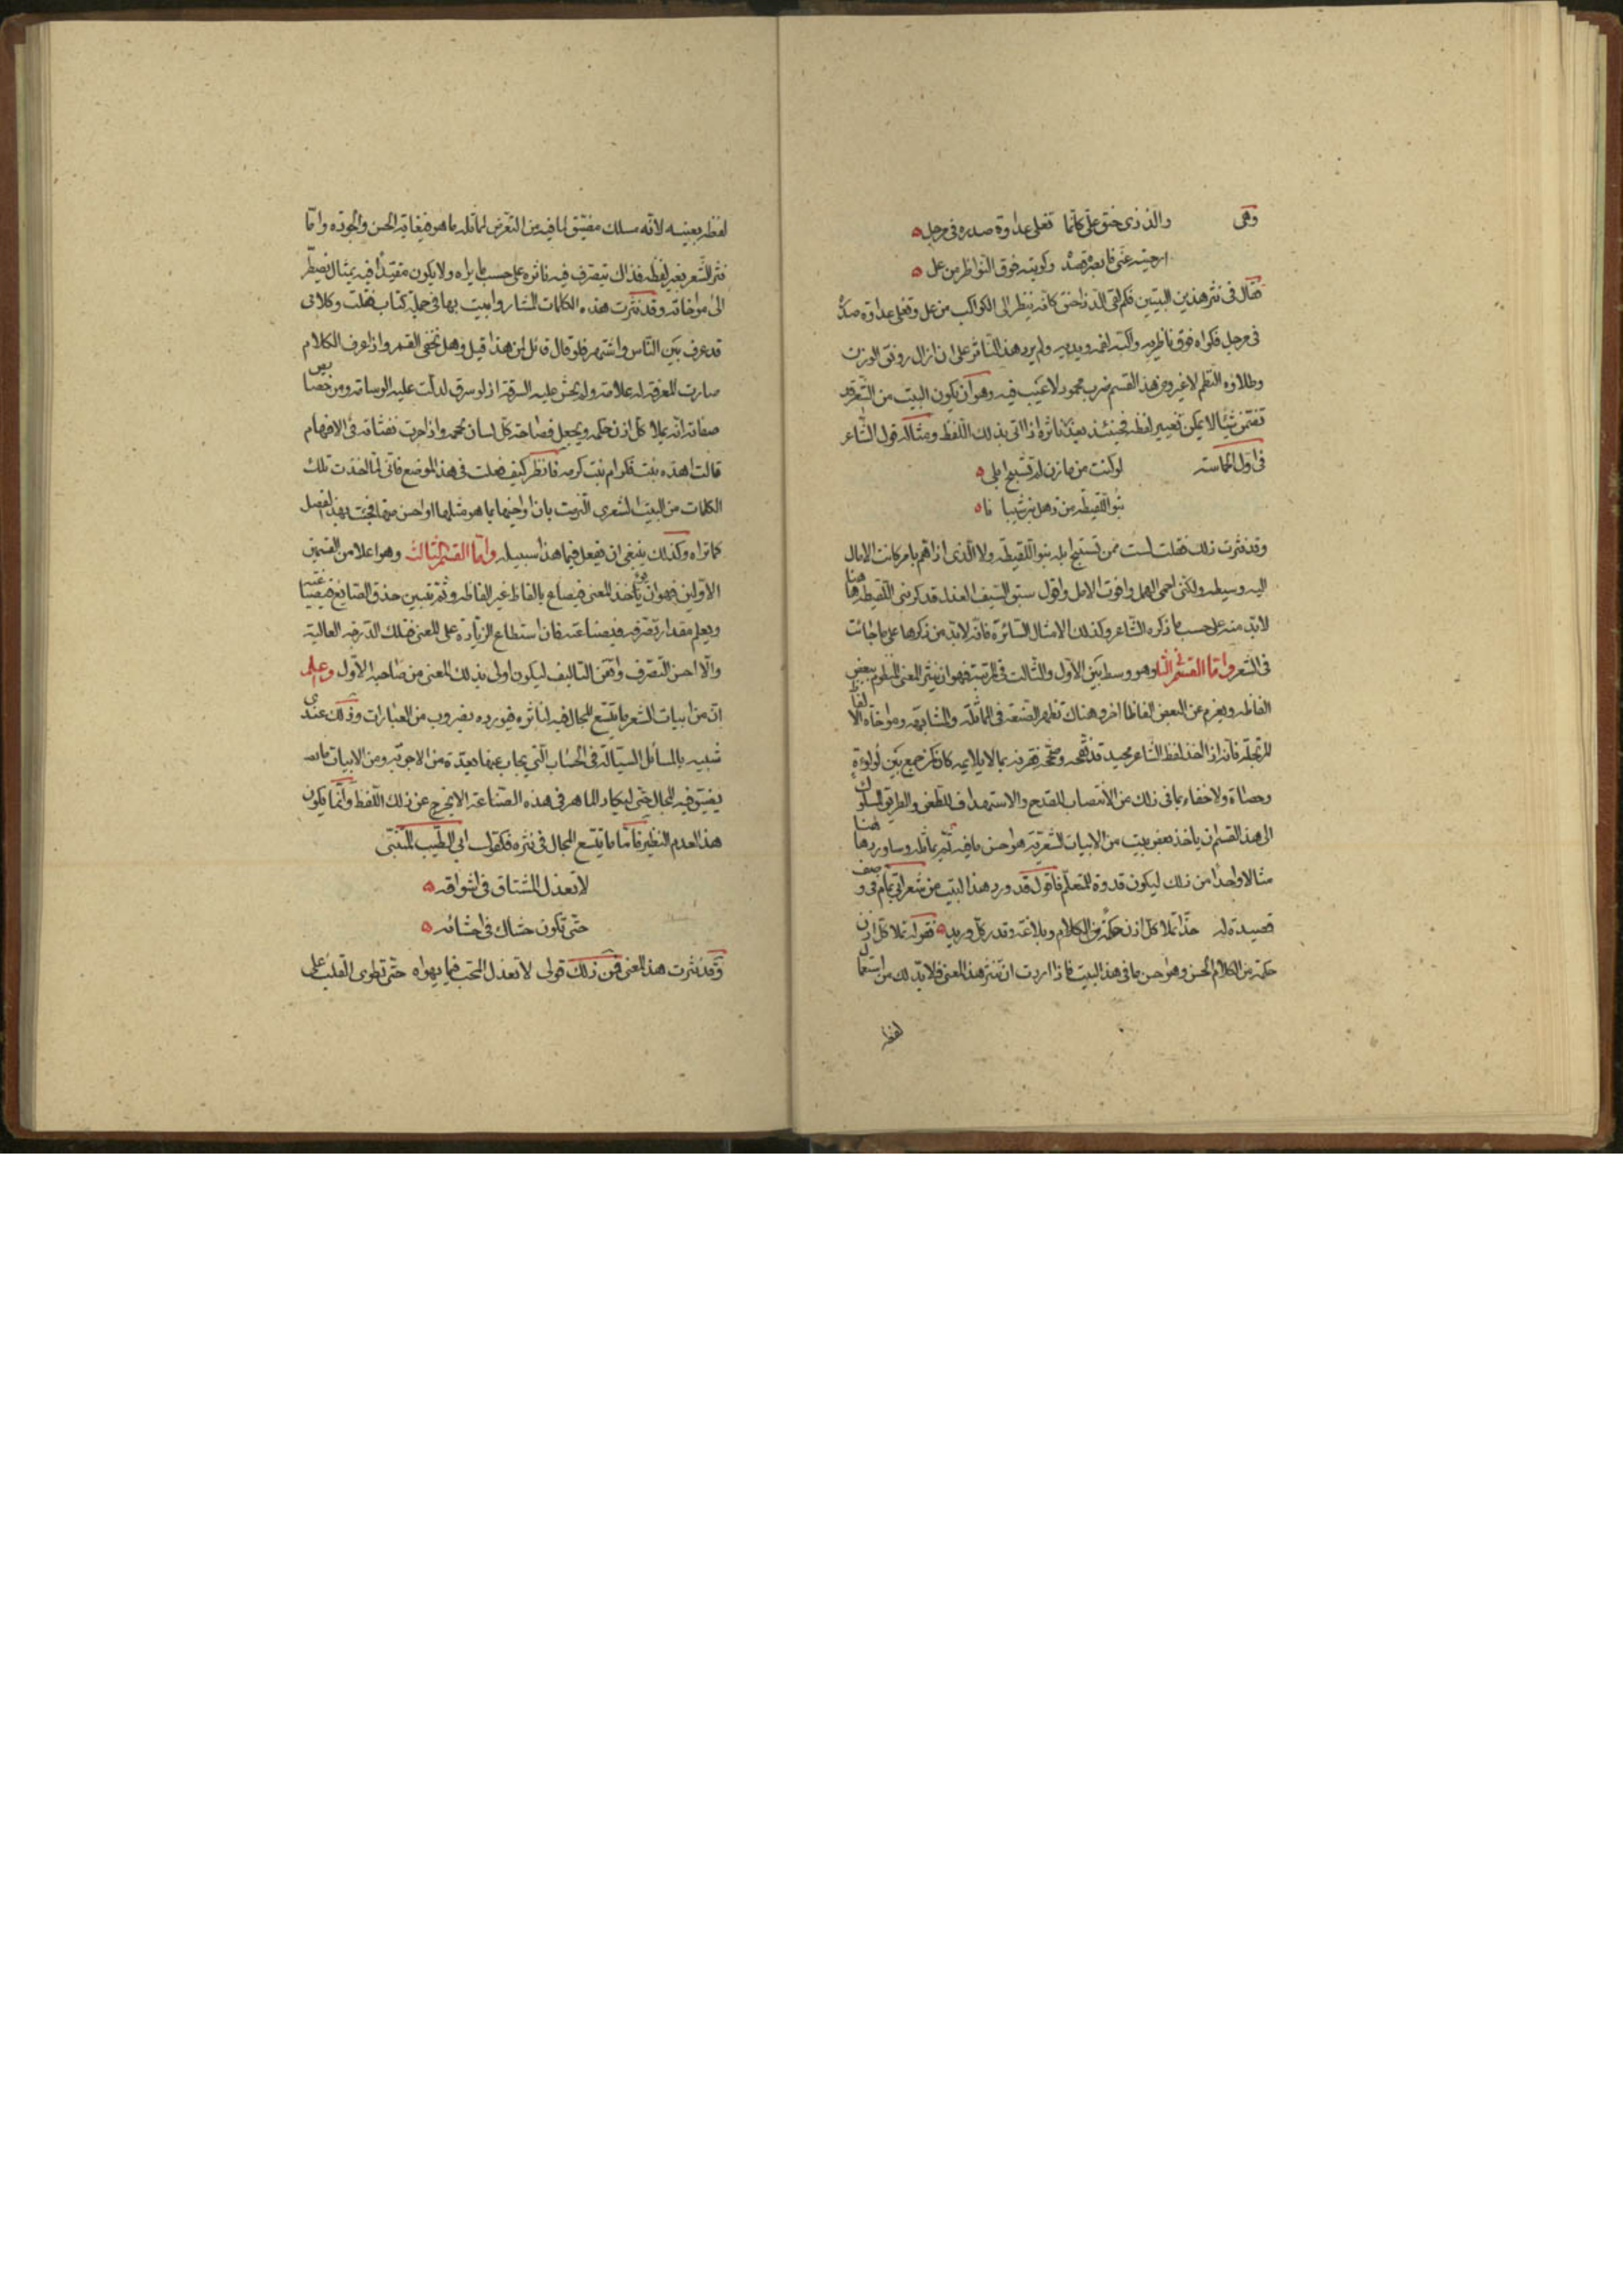 وهى والذ ذى حنق علىّ كانما تغلى عداوة صدره فى مرجل
ارجيته عنى فابصر قصده وكويته فوق النواظر من عل
فقال فى نثر هذين البيتين فكم لقى الد ذا حنق كانه ينظر الى الكواكب من عل وتغلى عداوة صدره
فى مرجل فكواه فوق ناظريه واكبه لفمه ويديه ولم يزد هذا الناثر على ان ازال رونق الوزن
وطلاوة النظم لا غير ومن هذا القسم ضرب محمود لا عيب فيه وهو ان يكون البيت من الشعر قد
تضمن شيئا لا يمكن تغيير لفظه فحينئذ يعذر ناثره اذا اتى بذلك اللفظ ومثاله قول الشاعر
فى اول الحماسه لو كنت من مازن لم تستبح ابلى
بنو اللقيطه من ذهل بن شيبا نا
وقد نثرت ذلك فقلت لست ممن تستبيح ابله بنو اللقيطه ولا الذى اذا هم بامر كانت الامال
اليه وسيطه ولكنى احمى الهمل وافوت الامل واقول سبق السيف العذل فذكر بنى اللقيطه هاهنا
لابد منه على حسب ما ذكره الشاعر وكذلك الامثال السائرة فانه لابد من ذكرها على ما جائت
فى الشعر واما القسم الثانى وهو وسط بين الاول والثالث فى المرتبة فهو ان ينثر المعنى المنظوم ببعض
الفاظه ويغرم عن البعض الفاظا اخر وهناك تظهر الصنعه فى المماثلة والمشابهه ومواخاة الالفاظ
المرتجله فانه اذا اخذ لفظ الشاعر مجيد قد نقحه وصححه فقرنه بما لا يلايمه كان كمن جمع بين لولوة
وحصاة ولا خفاء بما فى ذلك من الانتصاب للقدح والاستهداف للطعن والطريق المسلوك
الى هذا القسم ان ياخذ بعض بيت من الابيات الشعرية هو احسن ما فيه ثم يماثله وساورد هاهنا
مثالا واحدا من ذلك ليكون قدوة للمتعلم فاقول قد ورد هذا البيت من شعر ابى تمام فى وصف
قصيدة له حذاء تملا كل اذن حكمة من الكلام وبلاغة وتدر كل وريد فقوله تملا كل اذن
حكمة من الكلام الحسن وهو احسن ما فى هذا البيت فاذا اردت ان تنثر هذا المعنى فلابد لك من استعمال
لفظه
لفظه بعينه لانه مسلك مضيق لما فيه من التعرض لمماثلة ما هو فى غاية الحسن والجوده واما
نثر الشعر بغير لفظه فذاك يتصرف فيه ناثره على حسب ما يراه ولا يكون مقيدا فيه بمثال يضطر
الى مواخاته وقد نثرت هذه الكلمات المشار واتيت بها فى جملة كتاب فقلت وكلامى
قد عرف بين الناس واشتهر فلو قال قائل لمن هذا قيل وهل يخفى القمر واذا عرف الكلام
صارت المعرفة له علامه ولم يخش عليه السرقة اذ لو سرق لدلت عليه الوسامه ومن خصايص
صفاته انه يملا كل اذن حكمه ويجعل فصاحة كل لسان عجمه واذا جرت نفثاته فى الافهام
قالت اهذه بنت فكر ام بنت كرمه فانظر كيف فعلت فى هذا الموضع فانى لما اخذت تلك
الكلمات من البيت الشعرى التزمت بان اواخيها بما هو مثلها او احسن منها فجئت بهذا الفصل
كما تراه وكذلك ينبغى ان يفعل فيما هذا سبيله واما القسم الثالث وهو اعلا من القسمين
الاولين فهو ان يوخذ المعنى فيصاغ بالفاظ غير الفاظه وثم يتبين حذق الصايغ فى صياغته
ويعلم مقدار تصرفه فى صناعته فان استطاع الزيادة على المعنى فتلك الدرجه العاليه
والا احسن التصرف واتقن التاليف ليكون اولى بذلك المعنى من صاحبه الاول واعلم
ان من ابيات الشعر ما يتسع المجال فيه لناثره فيورده بضروب من العبارات وذلك عندى
شبيه بالمسائل السيالة فى الحساب التى يجاب عنها بعدة من الاجوبة ومن الابيات ما
يضيق فيه المجال حتى ليكاد الماهر فى هذه الصناعة الا يخرج عن ذلك اللفظ وانما يكون
هذا لعدم النظير فاما ما يتسع المجال فى نثره فكقول ابى الطيب المتنبى
لا تعذل المشتاق فى اشواقه
حتى تكون حشاك فى احشائه
وقد نثرت هذا المعنى فمن ذلك قولى لا تعذل المحب فيما يهواه حتى تطوى القلب على